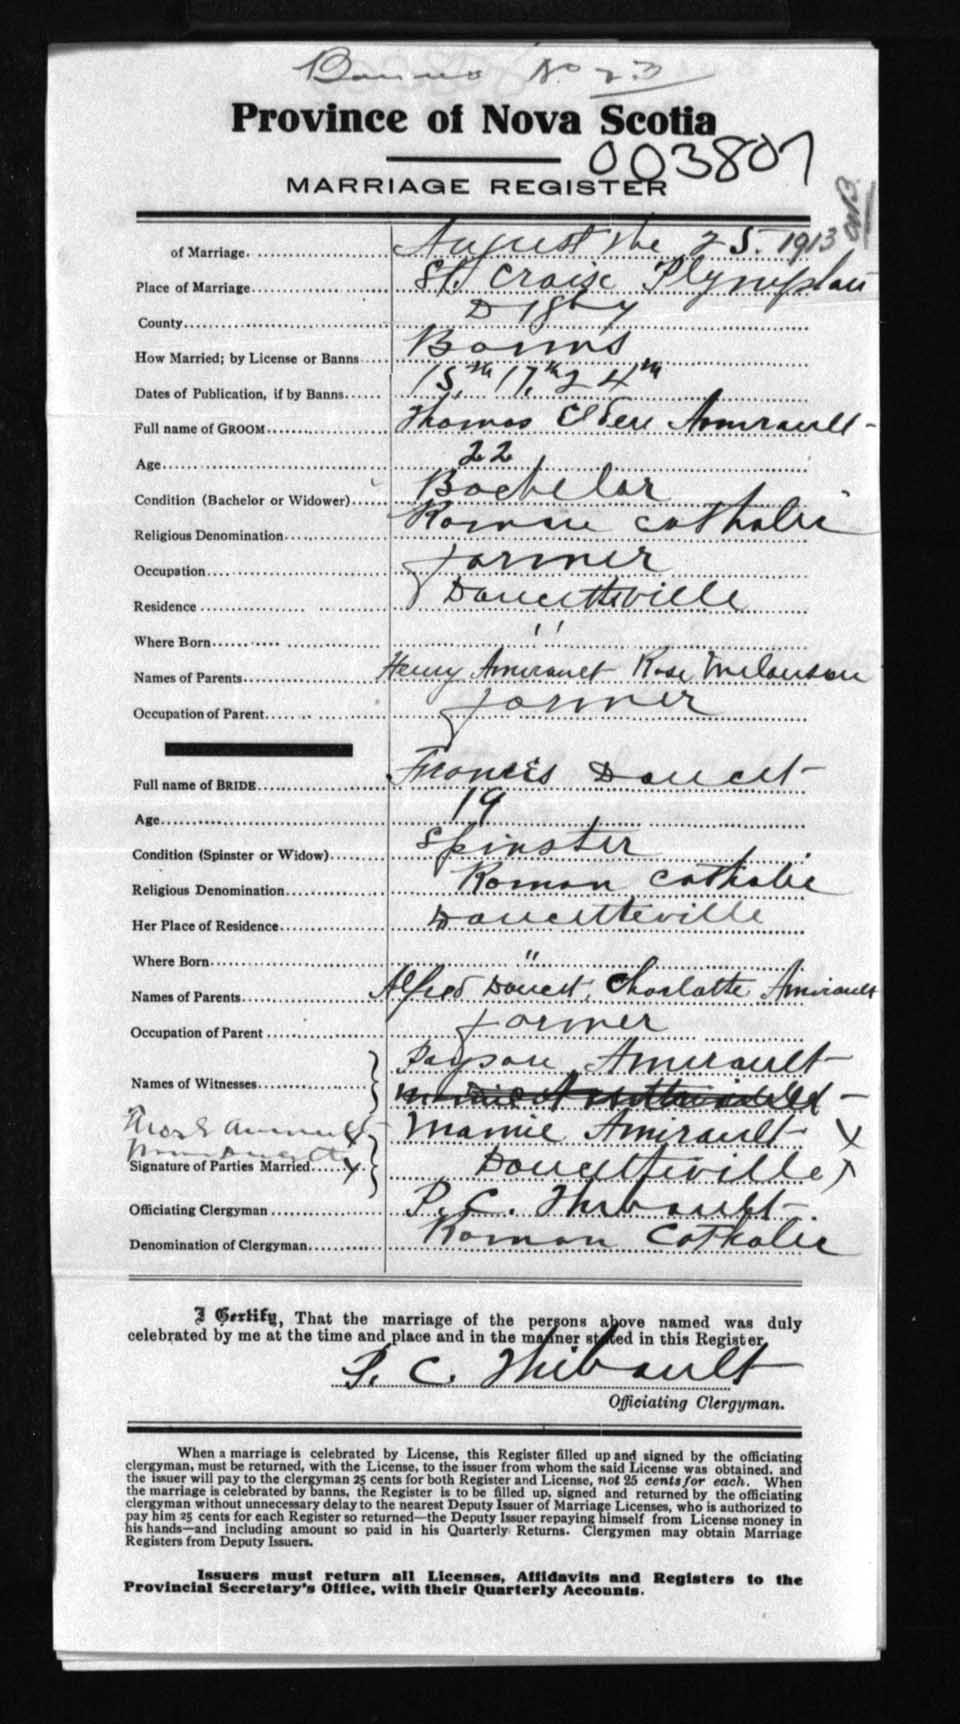 Banns No 23
Province of Nova Scotia
003807
MARRIAGE REGISTER
of Marriage. August the 25. 1913
Place of Marriage St. Croix Plympton
County Digby
How Married; by License or Banns Banns
Dates of Publication, if by Banns 15th, 17th, 24th
Full name of GROOM Thomas Amirault
Age 22
Condition (Bachelor or Widower) Bachelor
Religious Denomination Roman Catholic
Occupation farmer
Residence Doucetteville
Where Born "
Names of Parents Henry Amirault Rose Melanson
Occupation of Parent farmer
Full name of BRIDE Francis Doucet
Age 19
Condition (Spinster or Widow) Spinster
Religious Denomination Roman Catholic
Her Place of Residence Doucetteville
Where Born "
Names of Parents Alfred Doucet, Charlotte Amirault
Occupation of Parent farmer
Names of Witnesses Payson Amirault
Mamie Amirault X
Signature of Parties Married X Doucetteville X
Officiating Clergyman P. C. Thibault
Denomination of Clergyman Roman Catholic
I Certify, That the marriage of the persons above named was duly
celebrated by me at the time and place and in the manner stated in this Register.
P. C. Thibault
Officiating Clergyman.
When a marriage is celebrated by License, this Register filled up and signed by the officiating
clergyman, must be returned, with the License, to the issuer from whom the said License was obtained, and
the issuer will pay to the clergyman 25 cents for both Register and License, not 25 cents for each. When
the marriage is celebrated by banns, the Register is to be filled up, signed and returned by the officiating
clergyman without unnecessary delay to the nearest Deputy Issuer of Marriage Licenses, who is authorized to
pay him 25 cents for each Register so returned—the Deputy Issuer repaying himself from License money in
his hands—and including amount so paid in his Quarterly Returns. Clergymen may obtain Marriage
Registers from Deputy Issuers.
Issuers must return all Licenses, Affidavits and Registers to the
Provincial Secretary's Office, with their Quarterly Accounts.